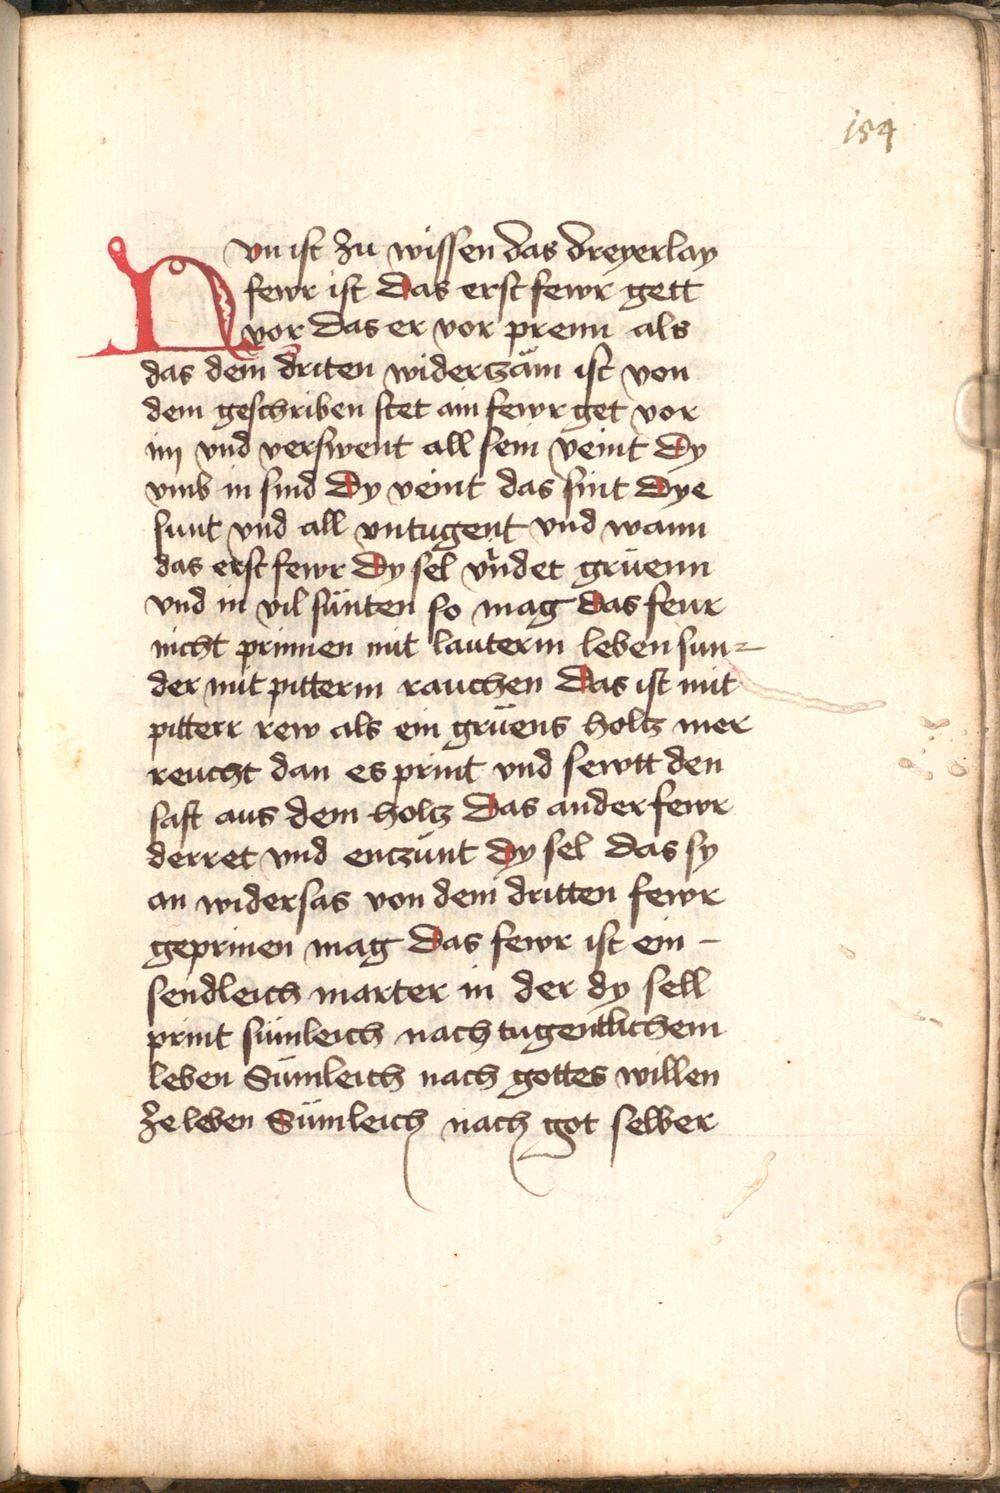 154
Nvn ist zu wissen das dreyerlay
fewr ist Das erst fewr gett
vor Das er vor prenn als
das dem driten widerzäm ist von
dem geschriben stet ain fewr get vor
im vnd verswent all sein veint Dy
vmb in sind Dy veint das sint Dye
sunt vnd all vntugent vnd wann
das erst fewr Dy sel vindet grüenn
vnd in vil sünten so mag Das feur
nicht prinnen mit lauterm leben sun=
der mit pitterm rauchen Das ist mit
pitterr rew als ein grüens holtz mer
reucht dan es print vnd sewtt den
saft aus dem holtz Das ander fewr
derret vnd enczünt Dy sel das sy
an widersas von dem dritten fewr
geprinen mag Das fewr ist ein –
sendleich marter in der dy sell
print sümleich nach tugentlichem
leben Sümleich nach gottes willen
ze leben Sümleich nach got selber